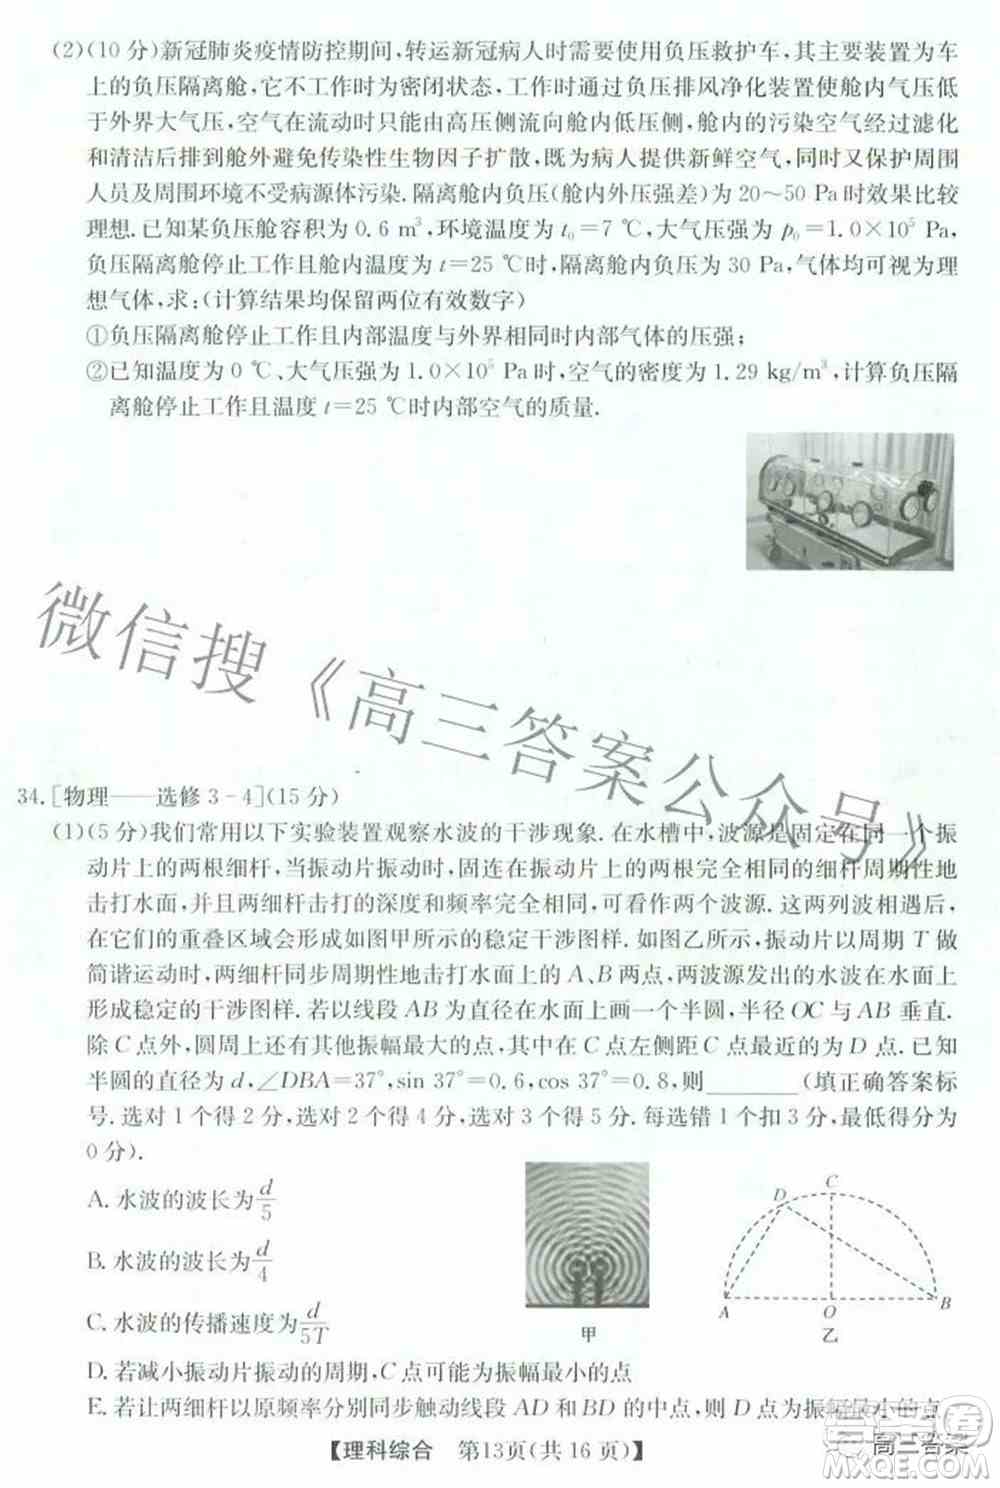 (2)(10 分)新冠肺炎疫情防控期间,转运新冠病人时需要使用负压救护车,其主要装置为车
上的负压隔离舱,它不工作时为密闭状态,工作时负压排风净化装置使舱内气压低
于外界大气压,空气在流动时只能由高压侧流向舱内低压侧,舱内的污染空气经过滤化
和清洁后排到舱外避免传染性生物因子扩散,既为病人提供新鲜空气,同时又保护周围
人员及周围环境不受病源体污染.隔离舱内负压(舱内外压强差)为 20～50 Pa 时效果比较
理想.已知某负压舱容积为 0.6 m³,环境温度为 t₀=7 ℃,大气压强为 p₀=1.0×10⁵ Pa,
负压隔离舱停止工作且舱内温度为 t=25 ℃时,隔离舱内负压为 30 Pa,气体均可视为理
想气体,求:(计算结果均保留两位有效数字)
①负压隔离舱停止工作且内部温度与外界相同时内部气体的压强;
②已知温度为 0 ℃、大气压强为 1.0×10⁵ Pa 时,空气的密度为 1.29 kg/m³,计算负压隔
离舱停止工作且温度 t=25 ℃时内部空气的质量.
微信搜《高三答案公众号》
34.[物理——选修 3-4](15 分)
(1)(5 分)我们常用以下实验装置观察水波的干涉现象.在水槽中,波源是固定在同一个振
动片上的两根细杆,当振动片振动时,固连在振动片上的两根完全相同的细杆周期性地
击打水面,并且两细杆击打的深度和频率完全相同,可看作两个波源.这两列波相遇后,
在它们的重叠区域会形成如图甲所示的稳定干涉图样.如图乙所示,振动片以周期 T 做
简谐运动时,两细杆同步周期性地击打水面上的 A、B 两点,两波源发出的水波在水面上
形成稳定的干涉图样.若以线段 AB 为直径在水面上画一半圆,半径 OC 与 AB 垂直.
除 C 点外,圆周上还有其他振幅最大的点,其中在 C 点左侧距 C 点最近的为 D 点.已知
半圆的直径为 d,∠DBA=37°,sin 37°=0.6,cos 37°=0.8,则________(填正确答案标
号.选对 1 个得 2 分,选对 2 个得 4 分,选对 3 个得 5 分.每选错 1 个扣 3 分,最低得分为
0 分).
A.水波的波长为d/5
B.水波的波长为d/4
C.水波的传播速度为d/5T
D.若减小振动片振动的周期,C 点可能为振幅最小的点
E.若让两细杆以原频率同步触动线段 AD 和 BD 的中点,则 O 点为振幅最小的点
甲
D
C
A
O
B
乙
【理科综合 第13页(共 16 页)】
高三答案
MXQE.COM